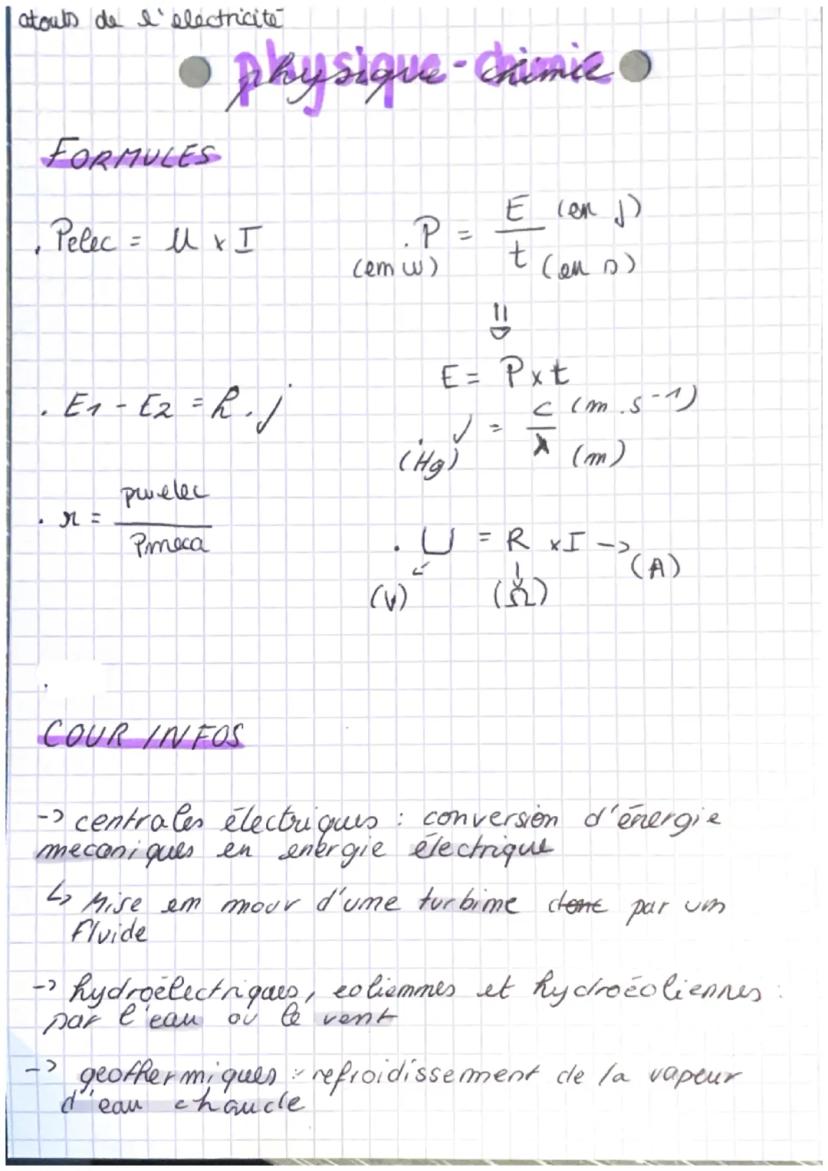 atouts de l'electricité
physique-chimie
FORMULES
. Pelec = U x I
. P = E (en j)
(em w) t (en s)
⇓
E = P x t
. E1 - E2 = h . j
. j = c (m . s -1)
(Hg) λ (m)
. r = pwelec
Pmeca
. U = R x I -> (A)
(V) (Ω)
COUR INFOS
-> centrales électriques : conversion d'énergie
mecaniques en energie électrique
↳ Mise em mour d'ume turbime donc par um
fluide
-> hydroélectriques, eoliemmes et hydroéoliennes :
par l'eau ou le vent
-> geothermiques : refroidissement de la vapeur
d'eau chaude